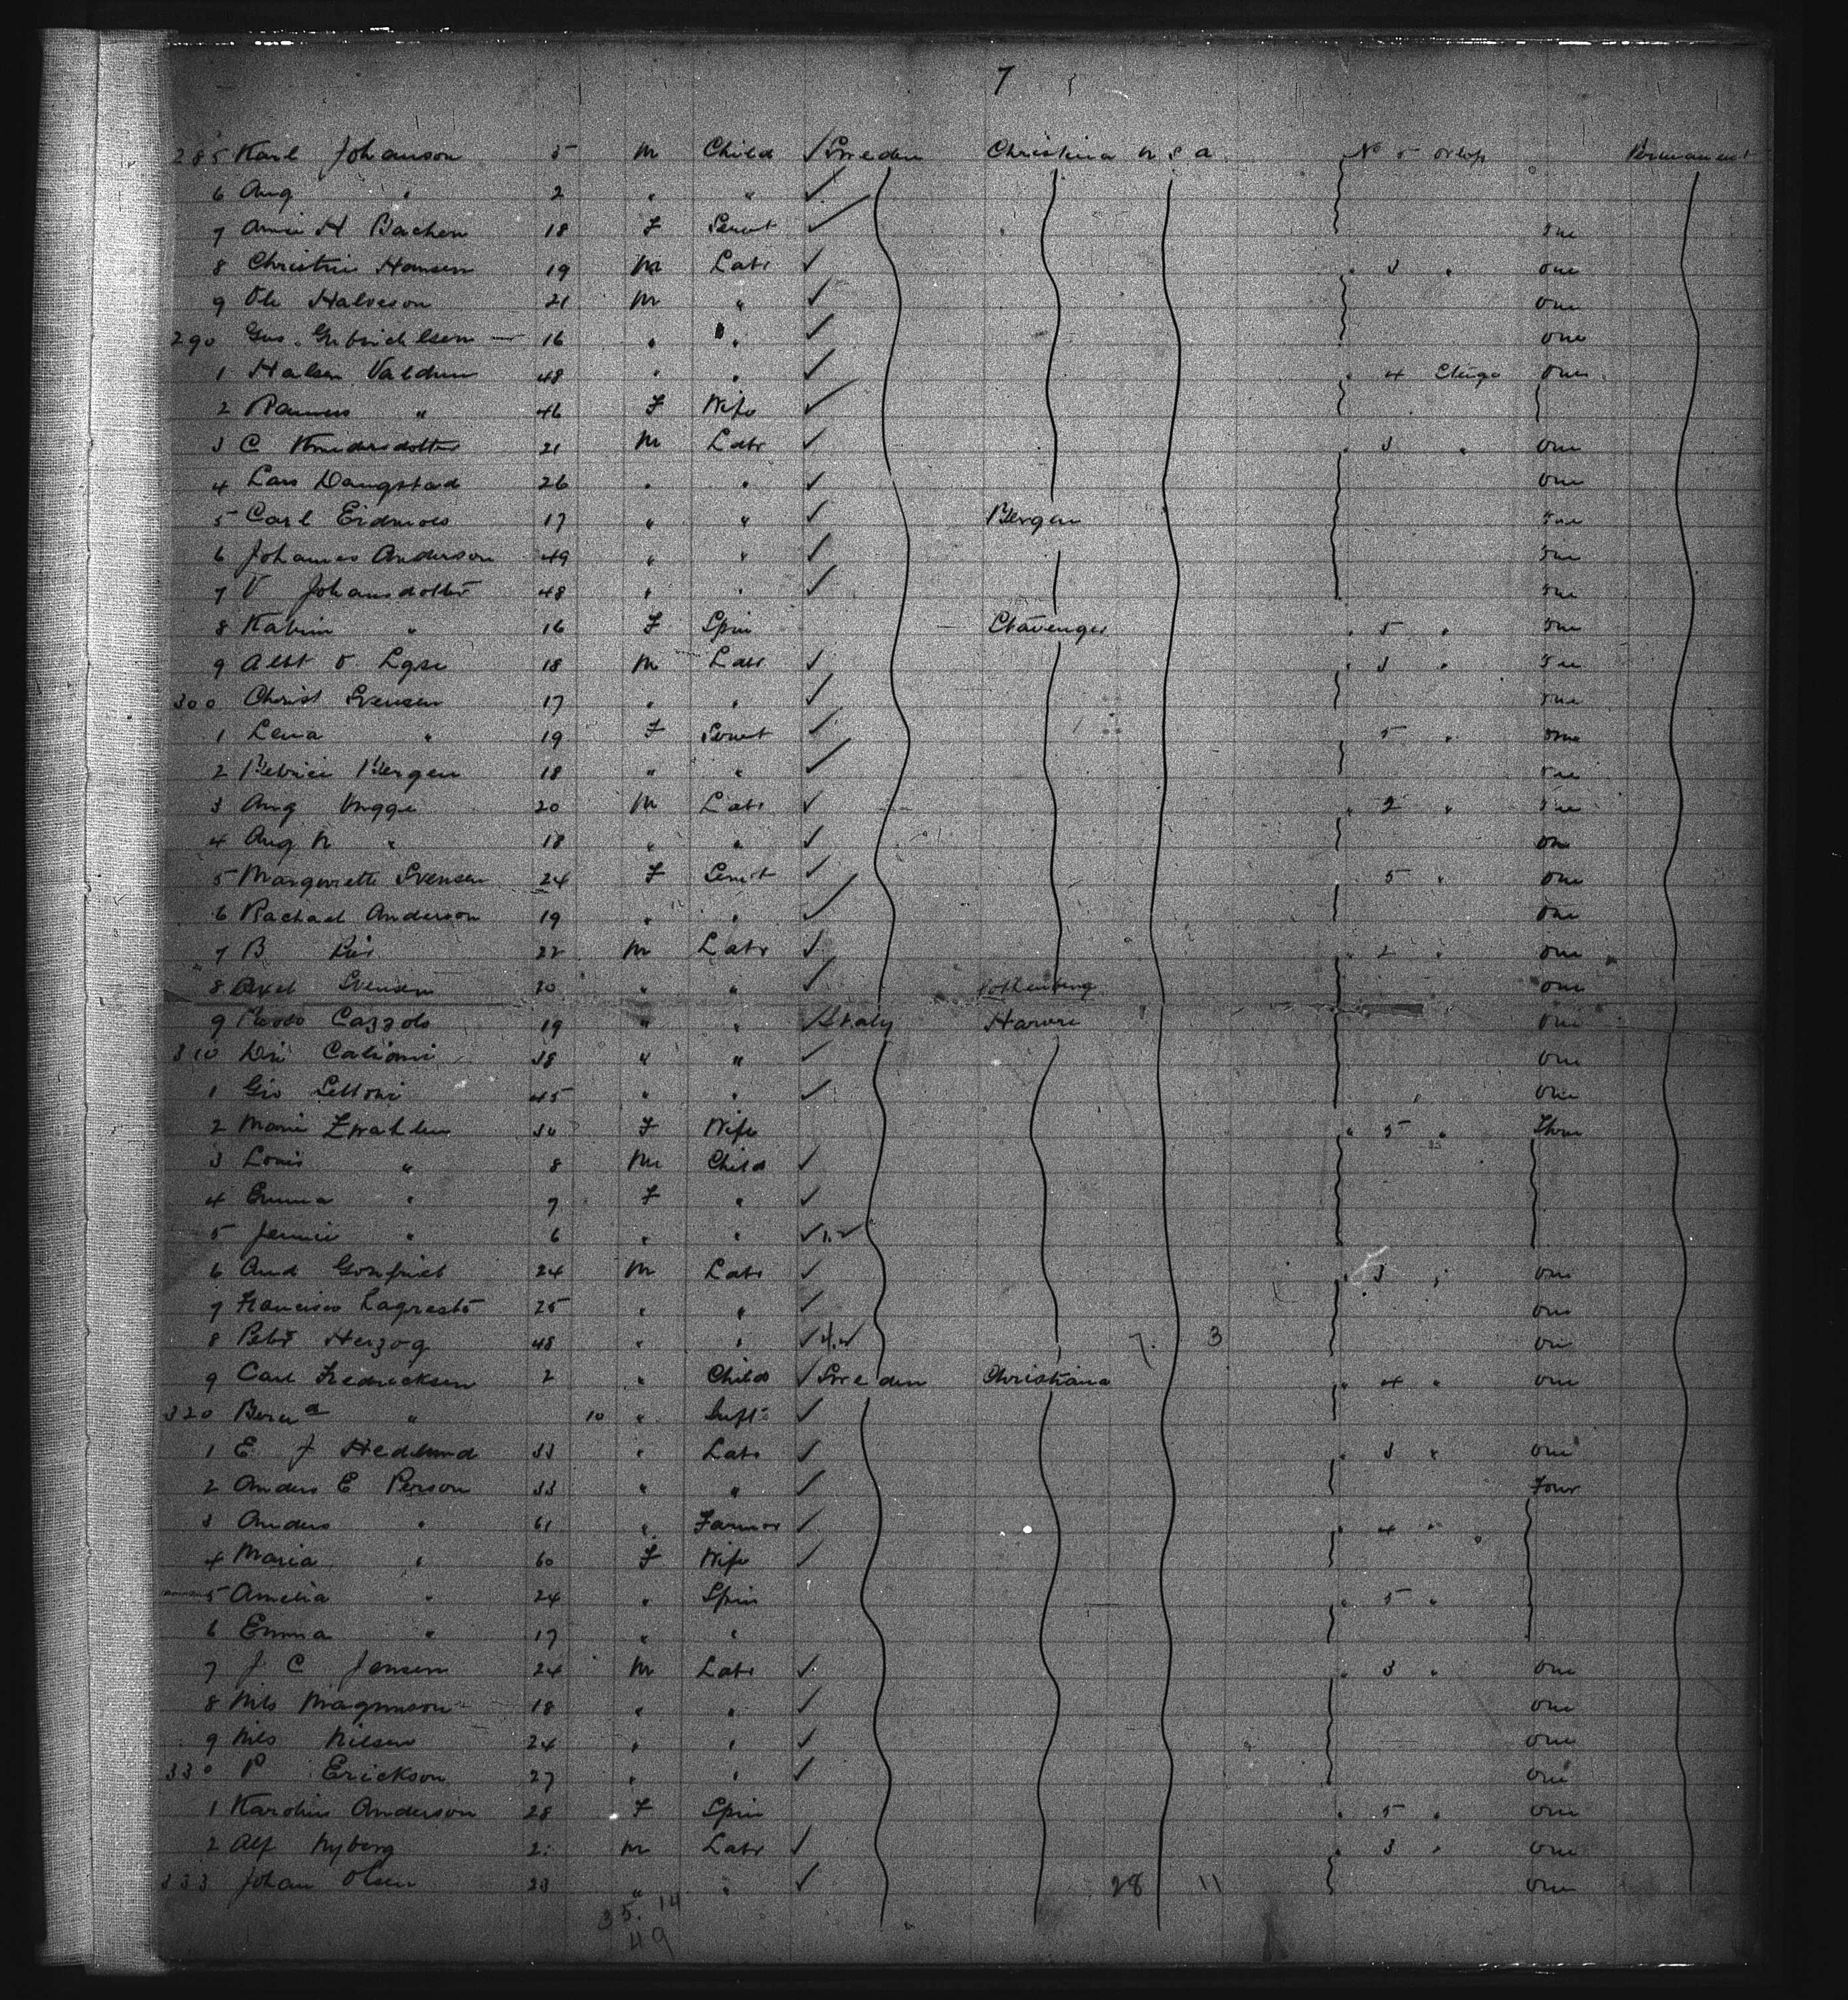 7
285 Karl Johanson 5 M Child ✓ Sweden Christina U S A No 5 Orlop Permanent
6 Aug " 2 " " ✓
7 H Bachen 18 F Servt ✓ One
8 Christin Hansen 19 M Labr ✓ " 3 " One
9 Ole Halveson 21 M " ✓ One
290 Gus. 16 " " ✓ One
1 Halsen Valdum 48 " " ✓ " 4 One
2 " 46 F Wife ✓
3 C 21 M Labr ✓ " 3 " One
4 Lars Dangstad 26 " " ✓ One
5 Carl 17 " " ✓ Bergen One
6 Johannes Anderson 49 " " ✓ One
7 V Johansdotter 48 " " ✓ One
8 Katrin " 16 F Spin Stavenger " 5 " One
9 Albt O 18 M Labr ✓ " 3 " One
300 Christ Svensen 17 " " ✓ One
1 Lena " 19 F Servt ✓ 5 " One
2 Bergen 18 " " ✓ One
3 Aug 20 M Labr ✓ " 2 " One
4 Aug N " 18 " " ✓ One
5 Margoriette Svensen 24 F Servt ✓ 5 " One
6 Rachael Anderson 19 " " ✓ One
7 B 22 M Labr ✓ " 2 " One
8 Axel Svensen 20 " " ✓ Gothenberg One
9 Cazzolo 19 " " ✓ Italy Havre One
310 Caliomi 38 " " ✓ One
1 Gio Lettoni 45 " " ✓ One
2 Marie Zwahlen 30 F Wife " 5 " Three
3 Louis " 8 M Child ✓
4 Emma " 7 F " ✓
5 Jennie " 6 " " ✓
6 And 24 M Labr ✓ " 3 " One
7 Francisco 25 " " ✓ One
8 Petr Herzog 48 " " ✓ 7. 3 One
9 Carl Fredricksen 2 " Child ✓ Sweden Christiana " 4 " One
320 " 10 " Inft ✓
1 E J Hedlund 33 " Labr ✓ " 3 " One
2 Anders E Person 33 " " ✓ Four
3 Anders " 61 " Farmer ✓ " 4 "
4 Maria " 60 F Wife ✓
5 Amelia " 24 " Spin " 5 "
6 Emma " 17 " "
7 J C Jensen 24 M Labr ✓ " 3 " One
8 Nils Magnuson 18 " " ✓ One
9 Nils Nilsen 24 " " ✓ One
330 P Erickson 27 " " ✓ One
1 Karolin Anderson 28 F Spin " 5 " One
2 Alf Nyborg M Labr ✓ " 3 " One
333 Johan Olsen 23 " " ✓ 28 11 One
35. 14
49